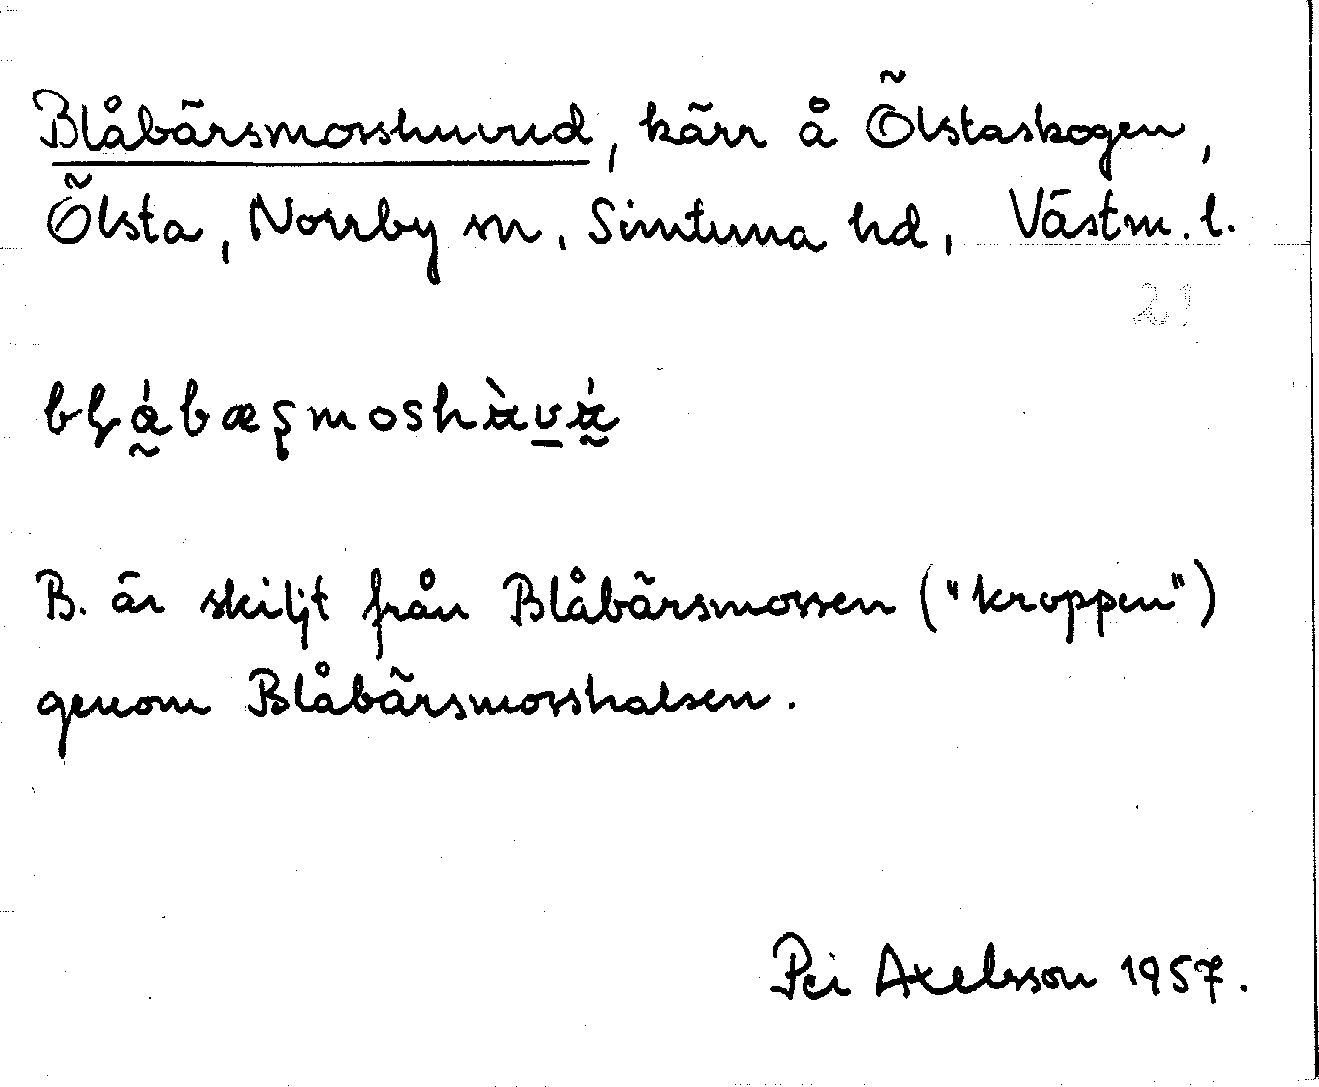 Blåbärsmosshuvud, kärr å Ölstaskogen,
Ölsta, Norrby sn, Simtuna hd, Västm. l.
21
B. är skiljt från Blåbärsmossen ("kroppen")
genom Blåbärsmosshalsen.
Pei Axelsson 1957.